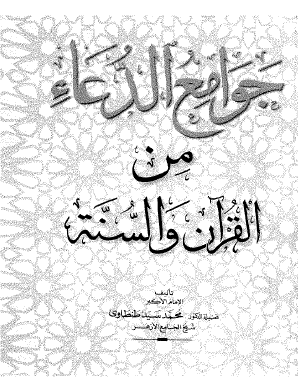 جَوَامِعُ الدُّعَاءِ
مِن
القُرْآنِ وَالسُّنَّة
تأليف
الإمام الأكبر
فضيلة الدكتور محمد سيد طنطاوى
شيخ الجامع الأزهر